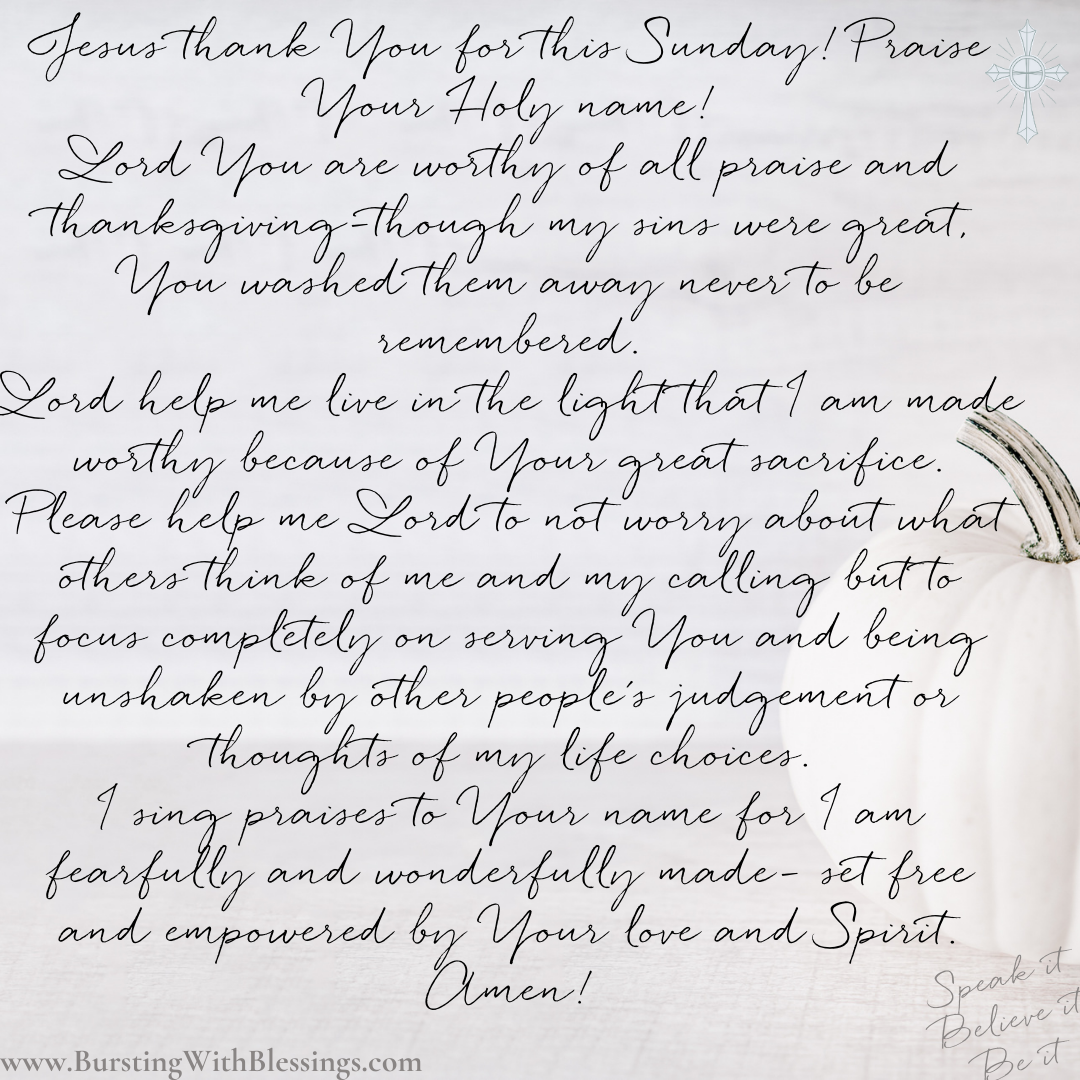 Jesus thank You for this Sunday! Praise
Your Holy name!
Lord You are worthy of all praise and
thanksgiving-though my sins were great,
You washed them away never to be
remembered.
Lord help me live in the light that I am made
worthy because of Your great sacrifice.
Please help me Lord to not worry about what
others think of me and my calling but to
focus completely on serving You and being
unshaken by other people's judgement or
thoughts of my life choices.
I sing praises to Your name for I am
fearfully and wonderfully made- set free
and empowered by Your love and Spirit.
Amen!
Speak it
Believe it
Be it
www.BurstingWithBlessings.com